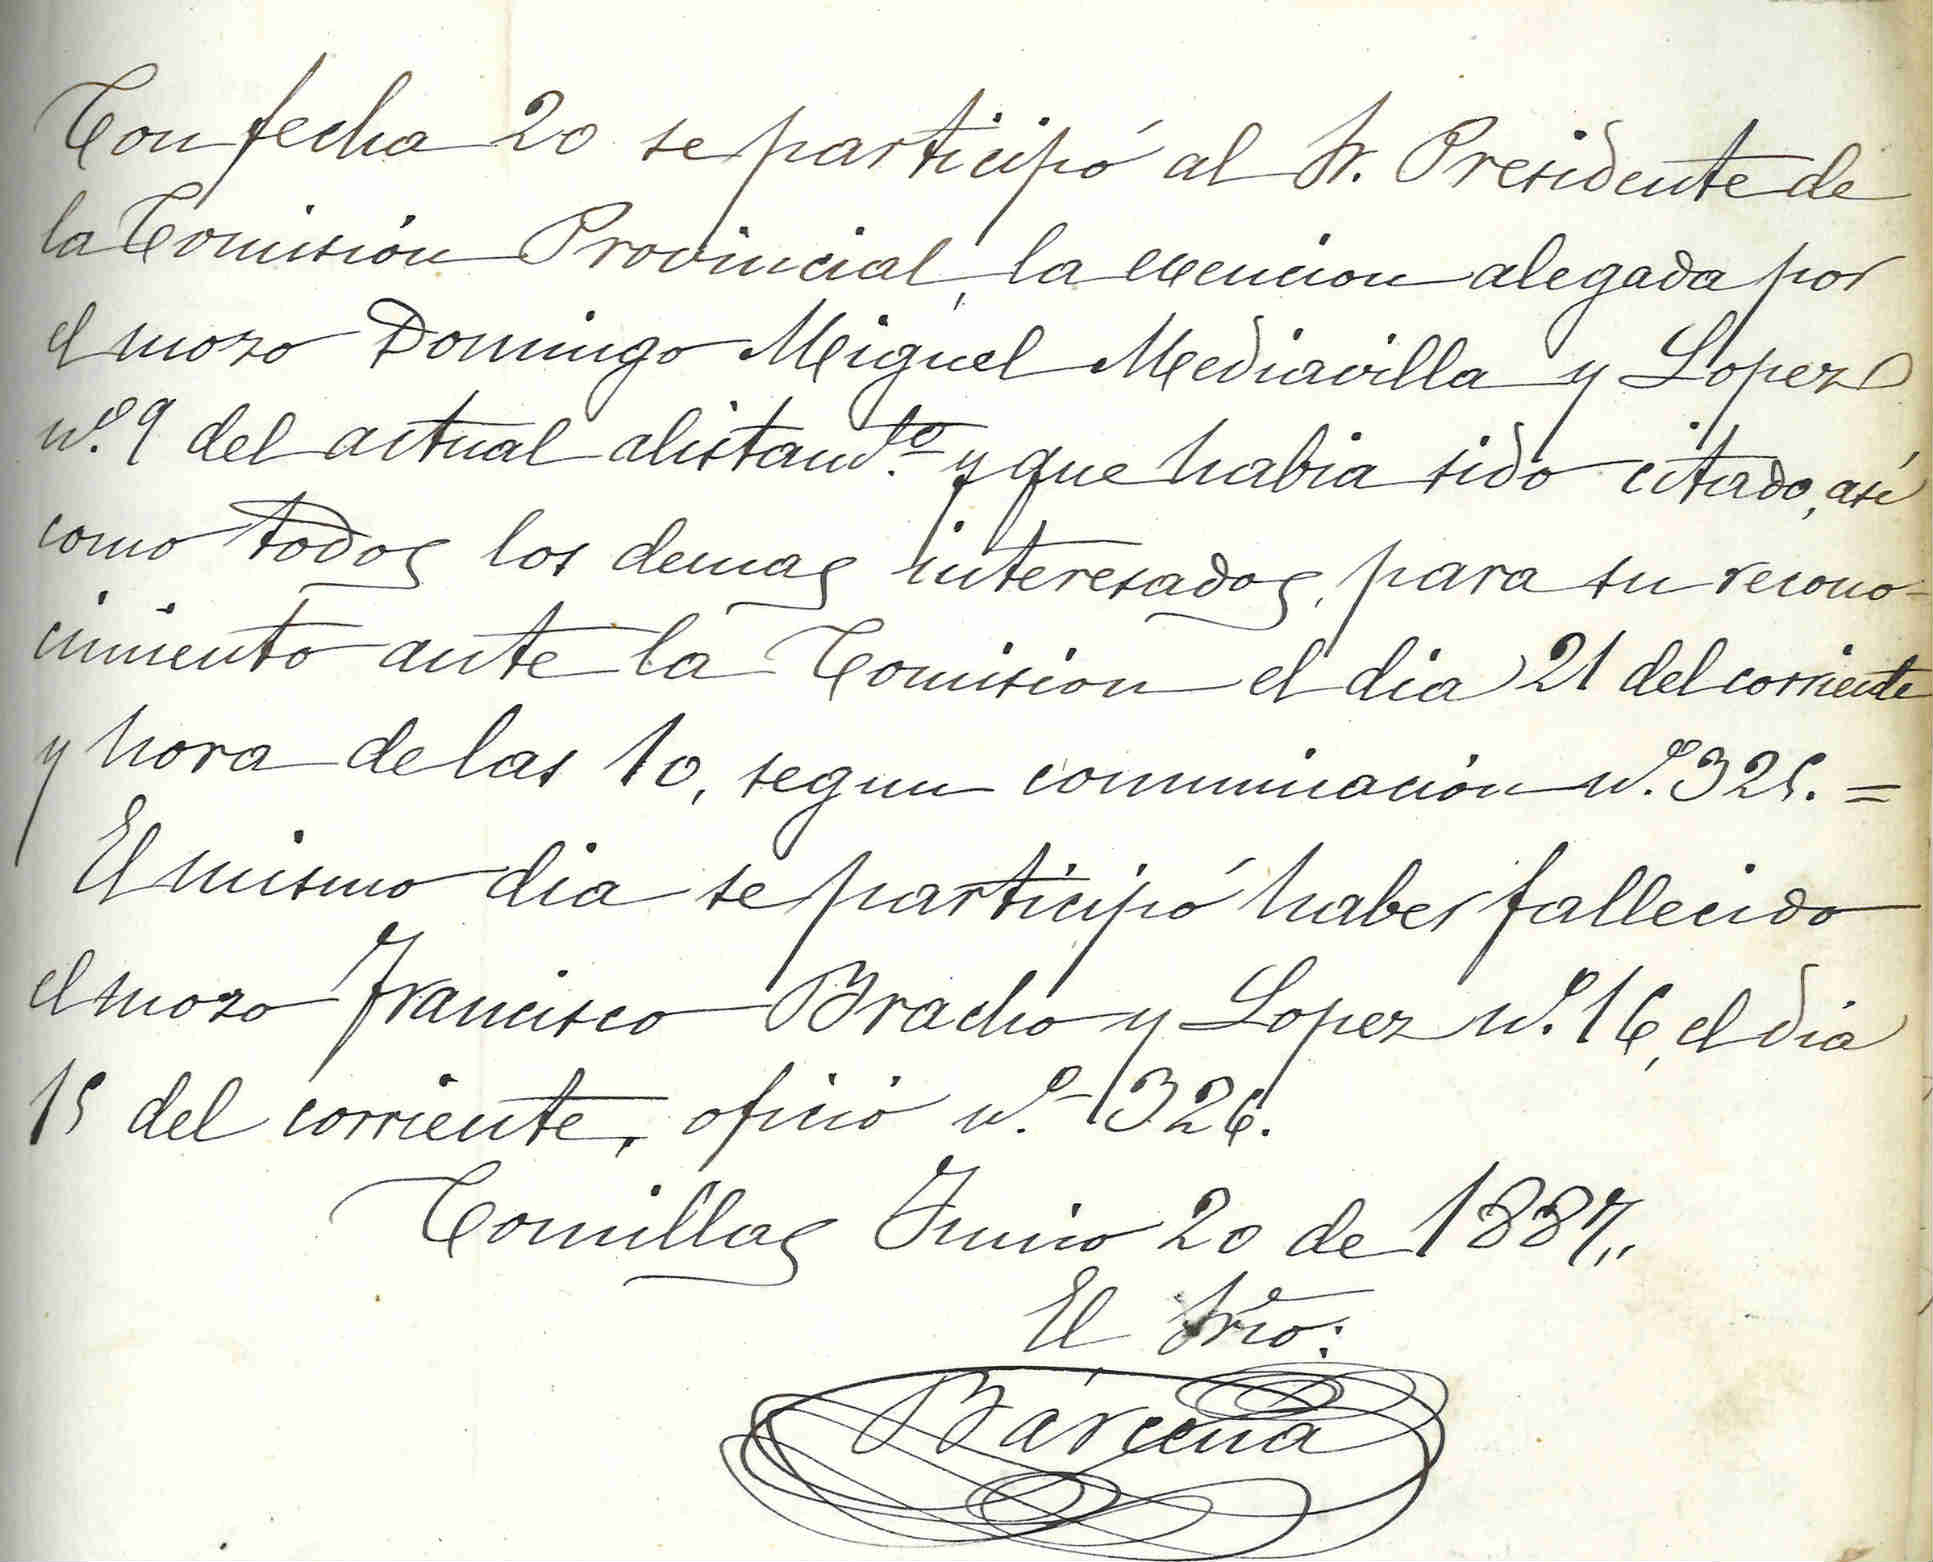 Con fecha 20 se participó al Sr. Presidente de
la Comisión Provincial, la exencion alegada por
el mozo Domingo Miguel Mediavilla y Lopez
nº. 9 del actual alistamto. y que habia sido citado, así
como todos los demas interesados, para su recono-
cimiento ante la Comision el dia 21 del corriente
y hora de las 10, segun comunicación nº. 325. =
El mismo dia se participó haber fallecido
el mozo Francisco Bracho y Lopez nº. 16, el dia
15 del corriente, oficio nº. 326.
Comillas Junio 20 de 1887,,
El Srio:
Bárcena